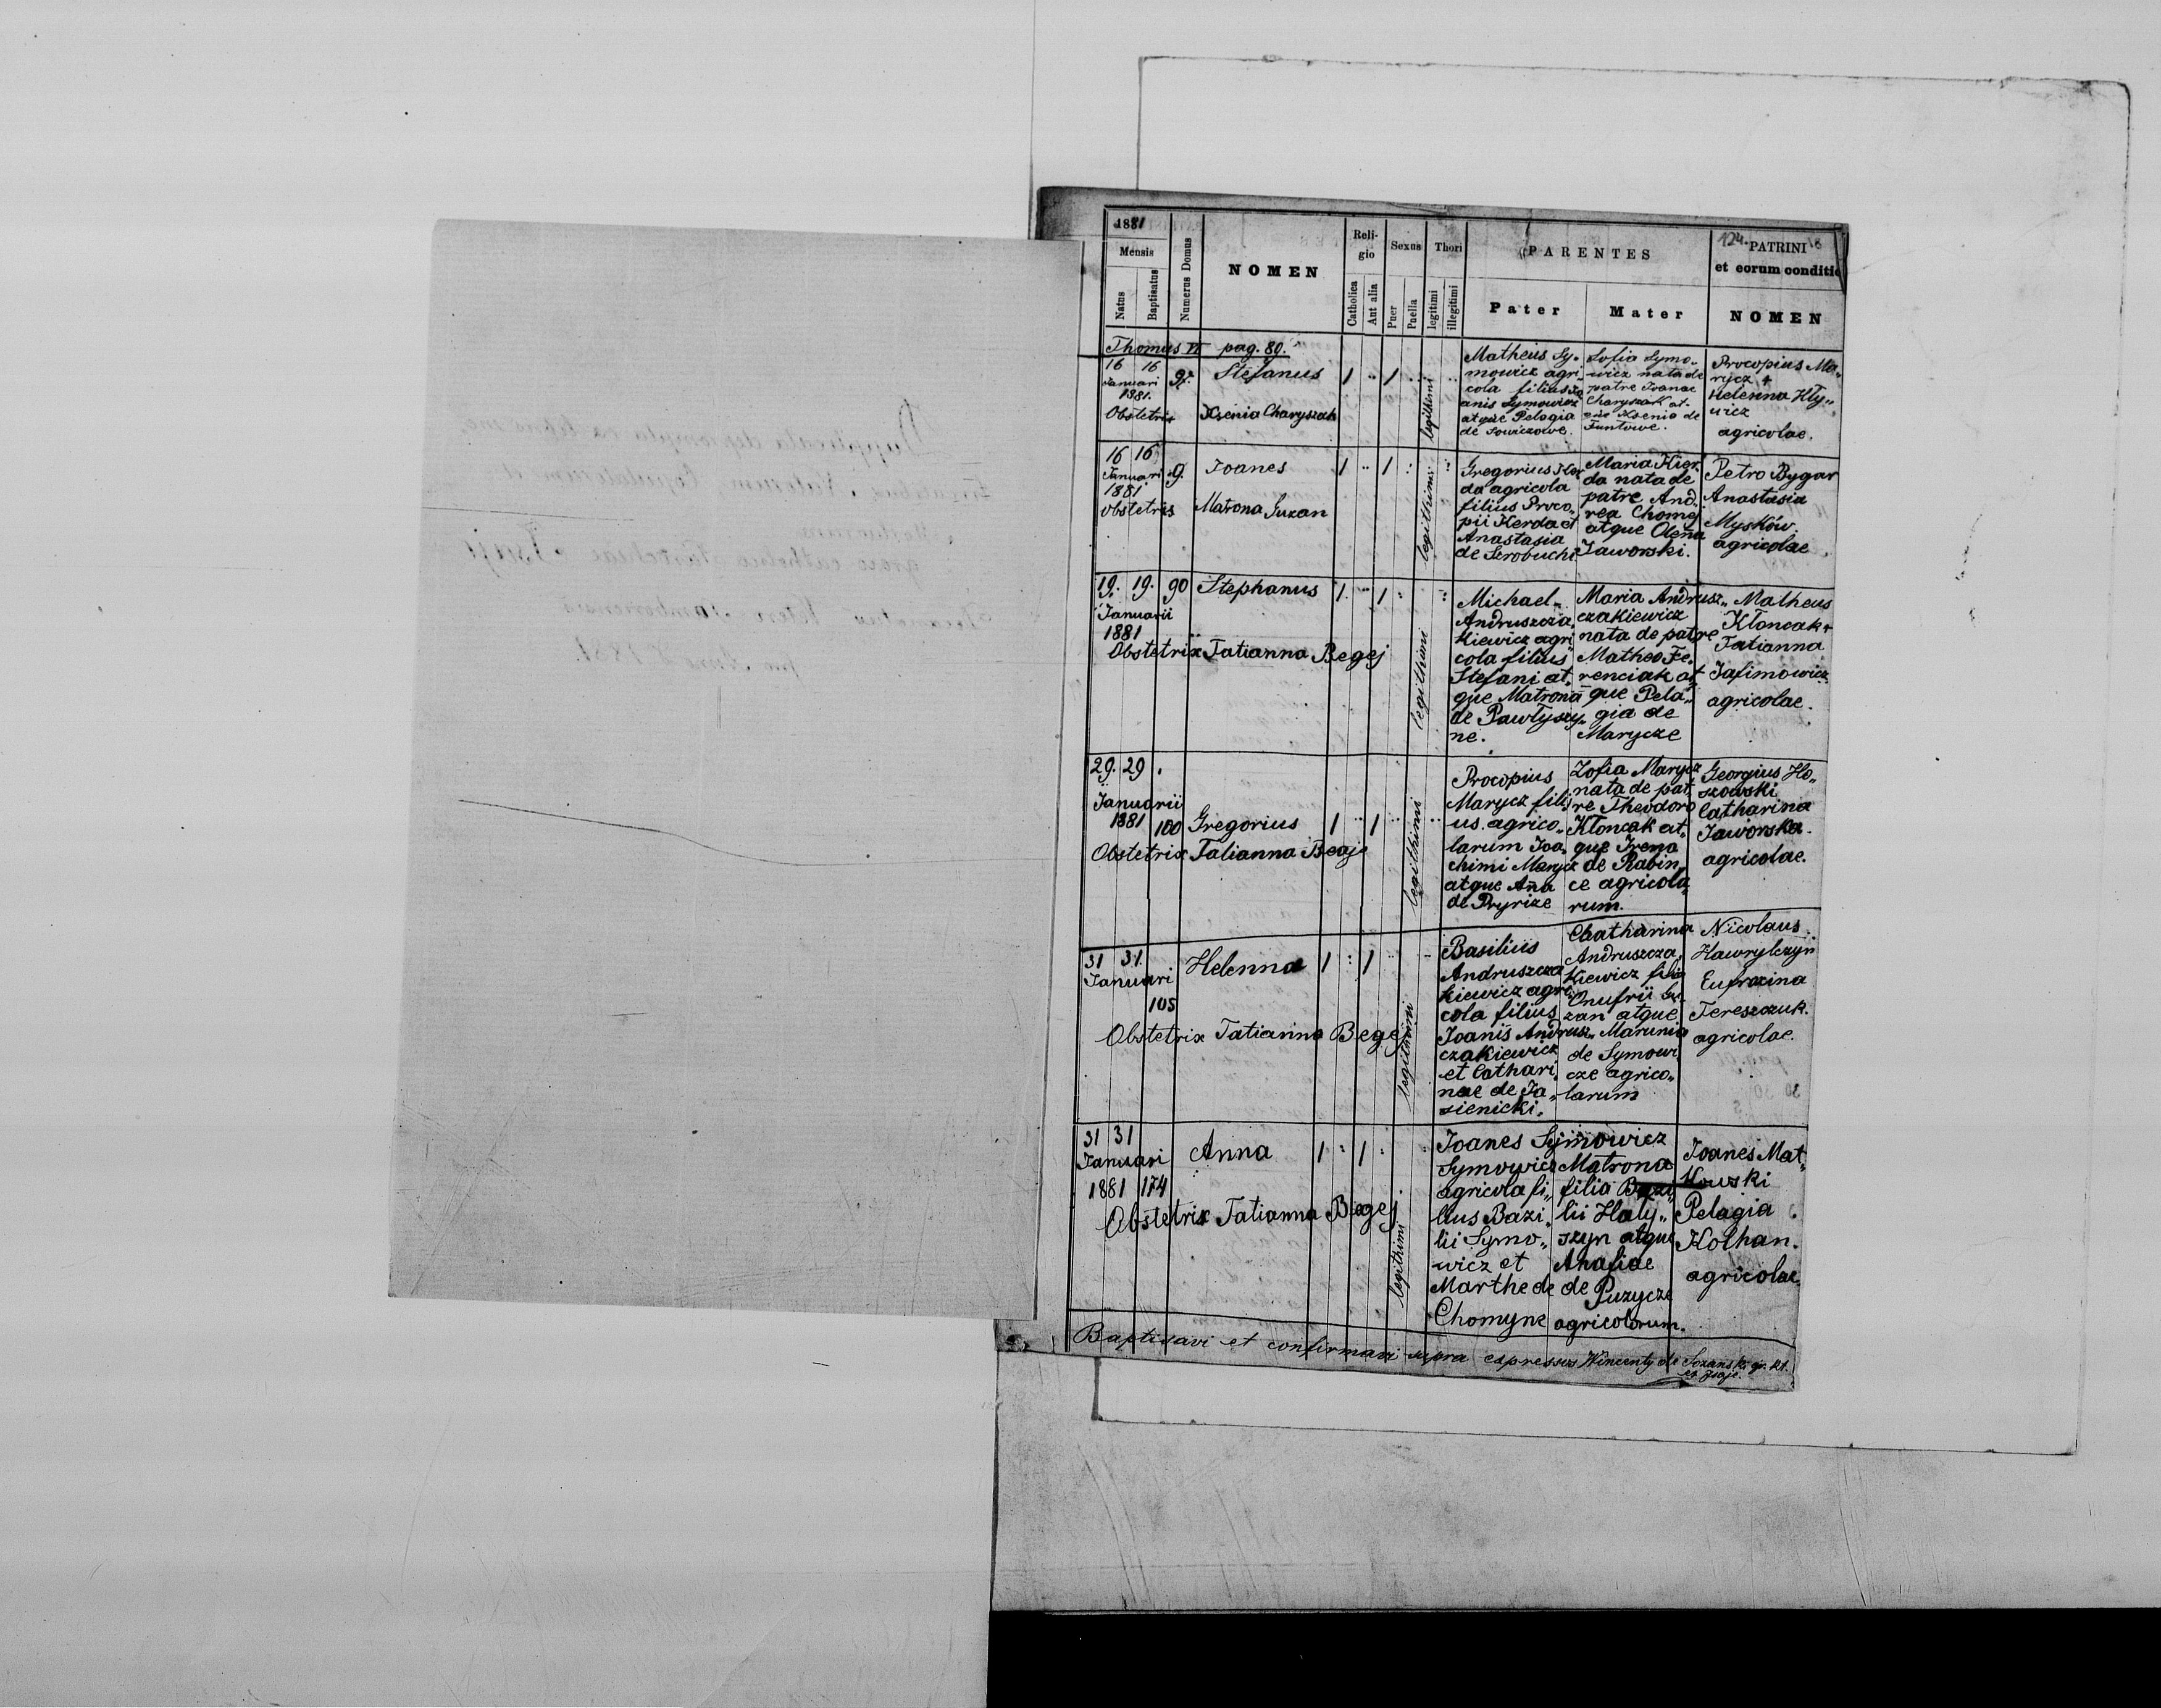 1881
Mensis
Natus
Baptisatus
Numerus Domus
NOMEN
Reli-
gio
Catholica
Aut alia
Sexus
Puer
Puella
Thori
legitimi
illegitimi
PARENTES
Pater
Mater
124.
PATRINI
et eorum conditio
NOMEN
Thomus VI pag. 80.
16 16
Januari
1881.
Obstetrix
Stefanus
Xsenia Charyszak
1 1
legithimi
Matheus Sy-
mowicz agri-
cola filius Jo
anis Symowicz
atque Pelagia
de Sowiczowe.
Sofia Symo-
wicz nata de
patre Joanae
Charyszak at-
que Xsenia de
Funtowe.
Procopius Ma„
rycz +
Helenna Kly„
wicz
agricolae.
16 16
Januari 9.
1881
obstetrix
Joanes
Matrona Guzan
1 1
legithimi
Gregorius
da agricola
filius Proco-
pii Kerda et
Anastasia
de Serobuchi
Maria Kier
da nata de
patre And
rea Chomej
atque Olena
Jaworski.
Petro Bygar
Anastasia
Mysków.
agricolae
19. 19. 90
Januarii
1881
Obstetrix Tatianna Begej
Stephanus
1 1
legithimi
Michael„
Andruszcza„
kiewicz agri
cola filius
Stefani at„
que Matrona
de Pawlyszy„
ne.
Maria Andrusz„
czakiewicz
nata de patre
Matheo Fe„
renciak at
que Pela„
gia de
Marycze
Matheus
Kłoncak +
Tatianna
Jafimowicz
agricolae.
29. 29
Januarii
1881 100
Gregorius
1 1
Obstetrix Tatianna Begej
legithimi
Procopius
Marycz fili
us agrico„
larum Joa„
chimi Marycz
atque Ana
de Pryrize
Zofia Marycz
nata de pat„
re Theodoro
Kłoncak at„
que Irena
de Rabin„
ce agricola„
rum.
Georgius Ho„
szowski
Catharina
Jaworska
agricolae.
31 31
Januari
105
Helenna
1 1
Obstetrix Tatianna Begej
legithimi
Basilius
Andruszcza
kiewicz agri
cola filius
Joanis Andrusz„
czakiewicz
et Cathari„
nae de Ja„
sienicki.
Chatharina
Andruszcza„
kiewicz filia
Onufrii Gu„
zan atque
Marunia
de Symowi„
cze agrico„
larum
Nicolaus
Hawrylczyn
Eufrozina
Tereszczuk.
agricolae.
31 31
Januari
1881 174
Anna
1 1
Obstetrix Tatianna Begej
legithimi
Joanes Symowicz
Symowicz
agricola fi„
lius Bazi„
lii Symo„
wicz et
Marthe de
Chomyne
Matrona
filia Bazi„
lii Haly„
szyn atque
Anafiae
de Puzycze
agricolorum.
Joanes Mat„
kowski
Pelagia
Kolhan.
agricolae.
Baptisavi et confirmavi supra expressos Wincenty de Sozański gr. kt.